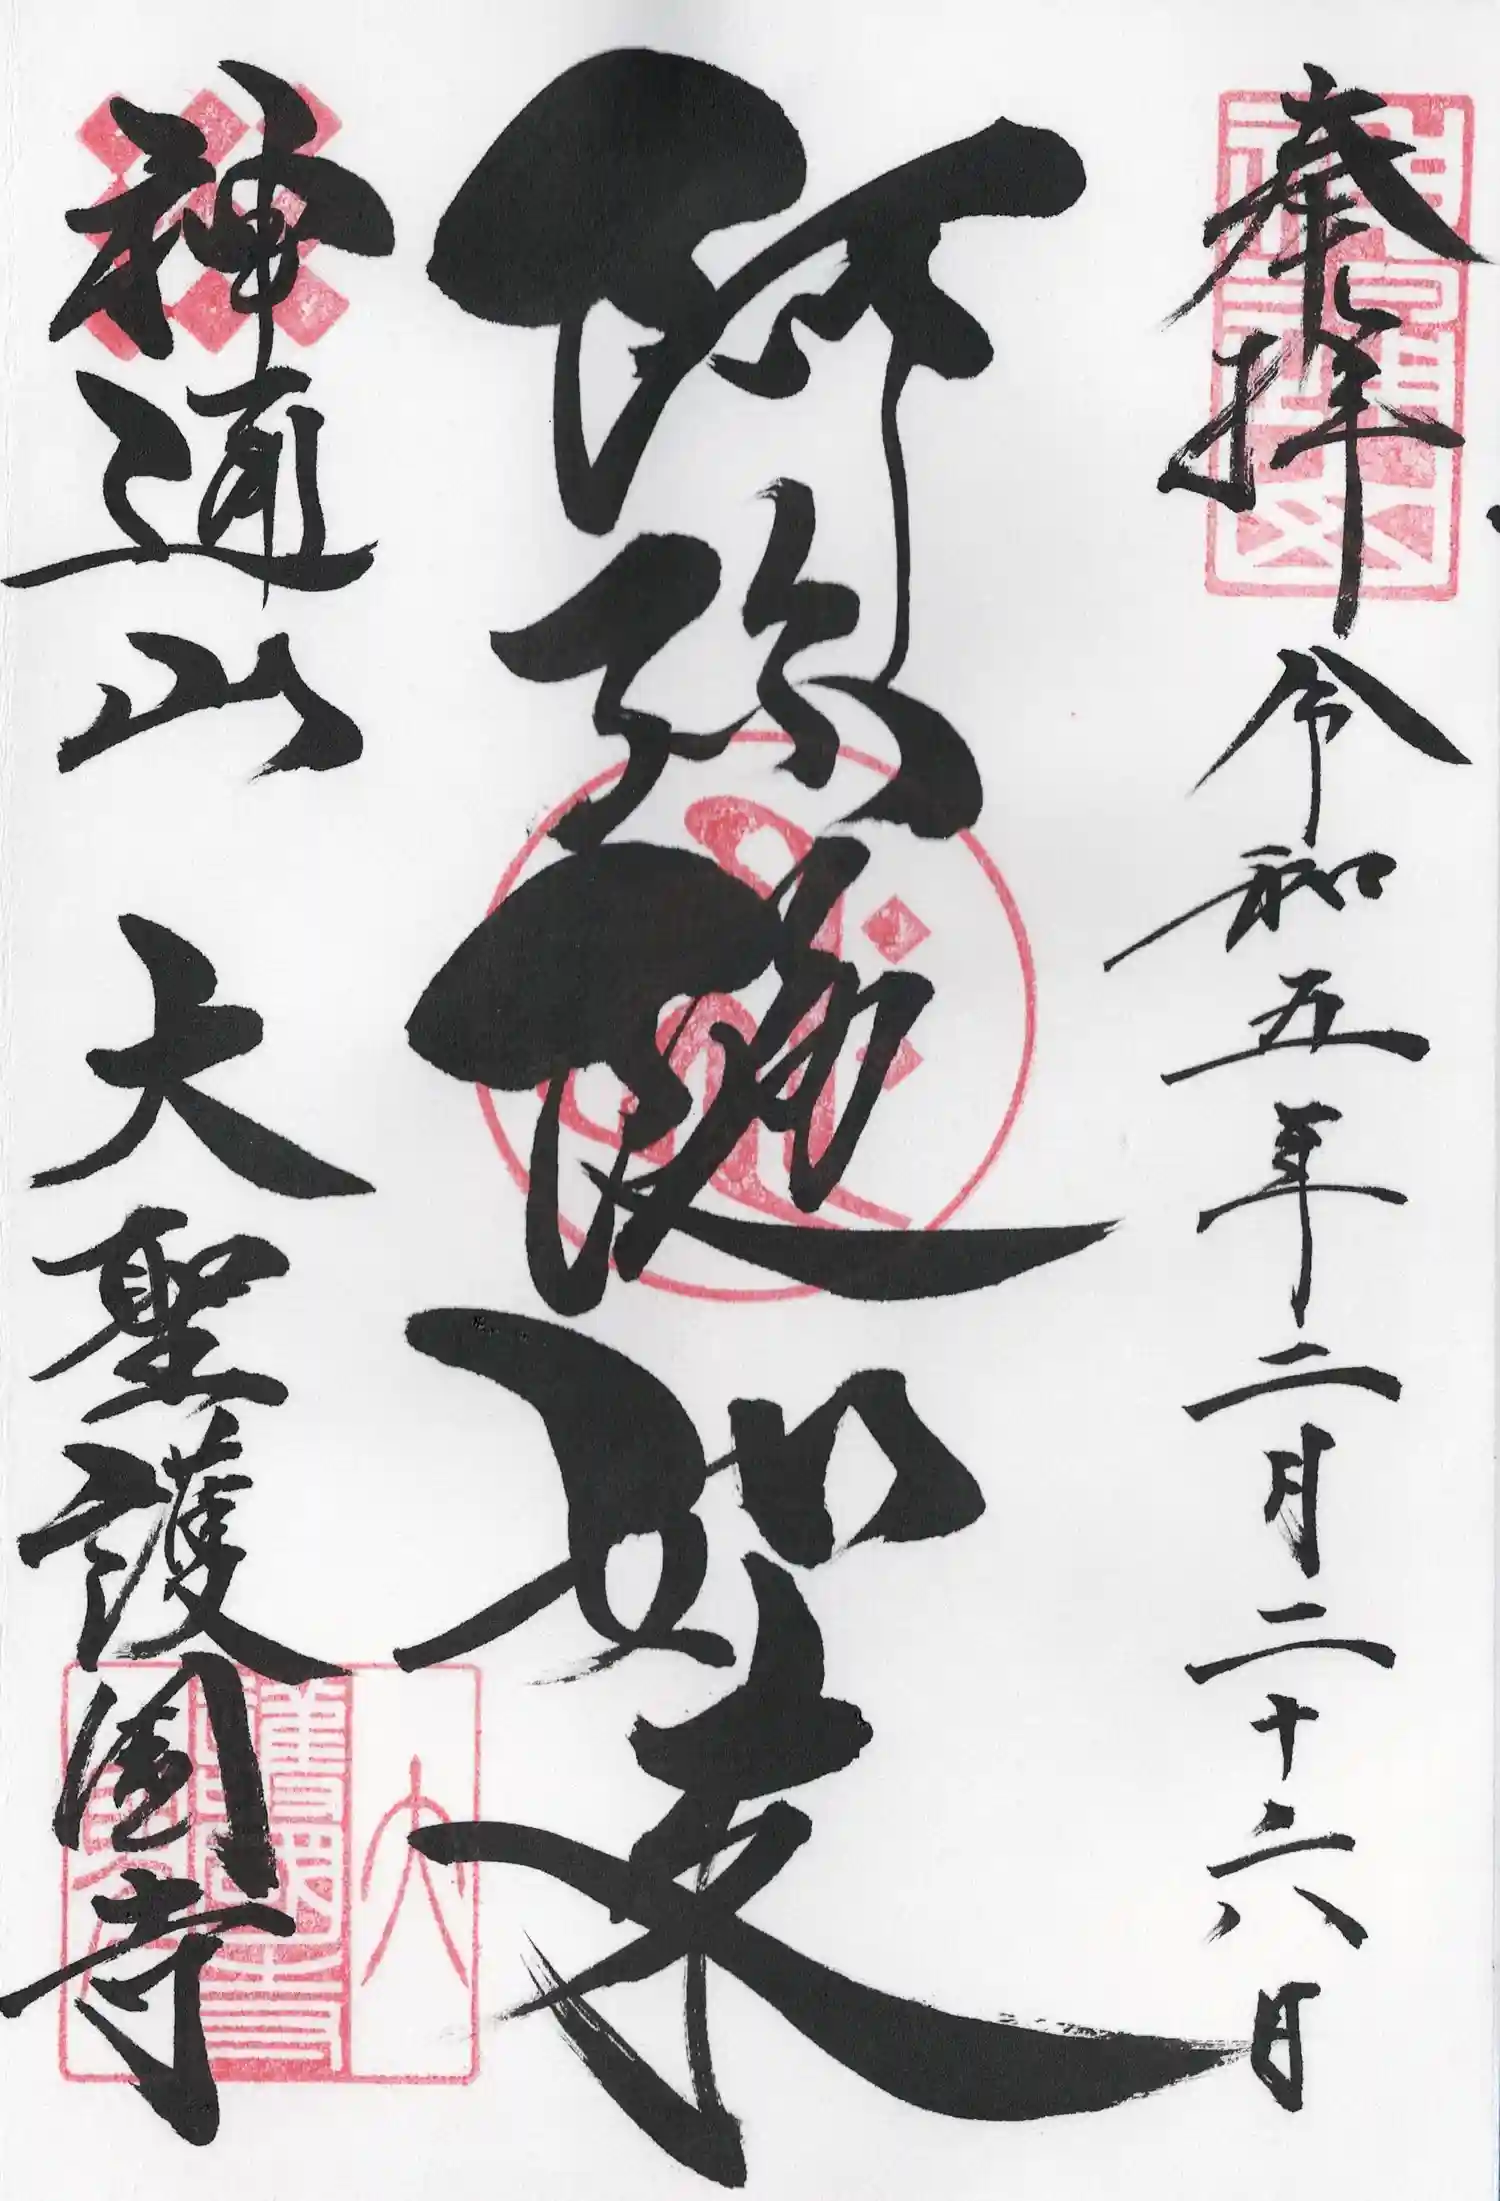 奉拝 令和五年二月二十六日
阿弥陀如来
神通山 大聖護国寺